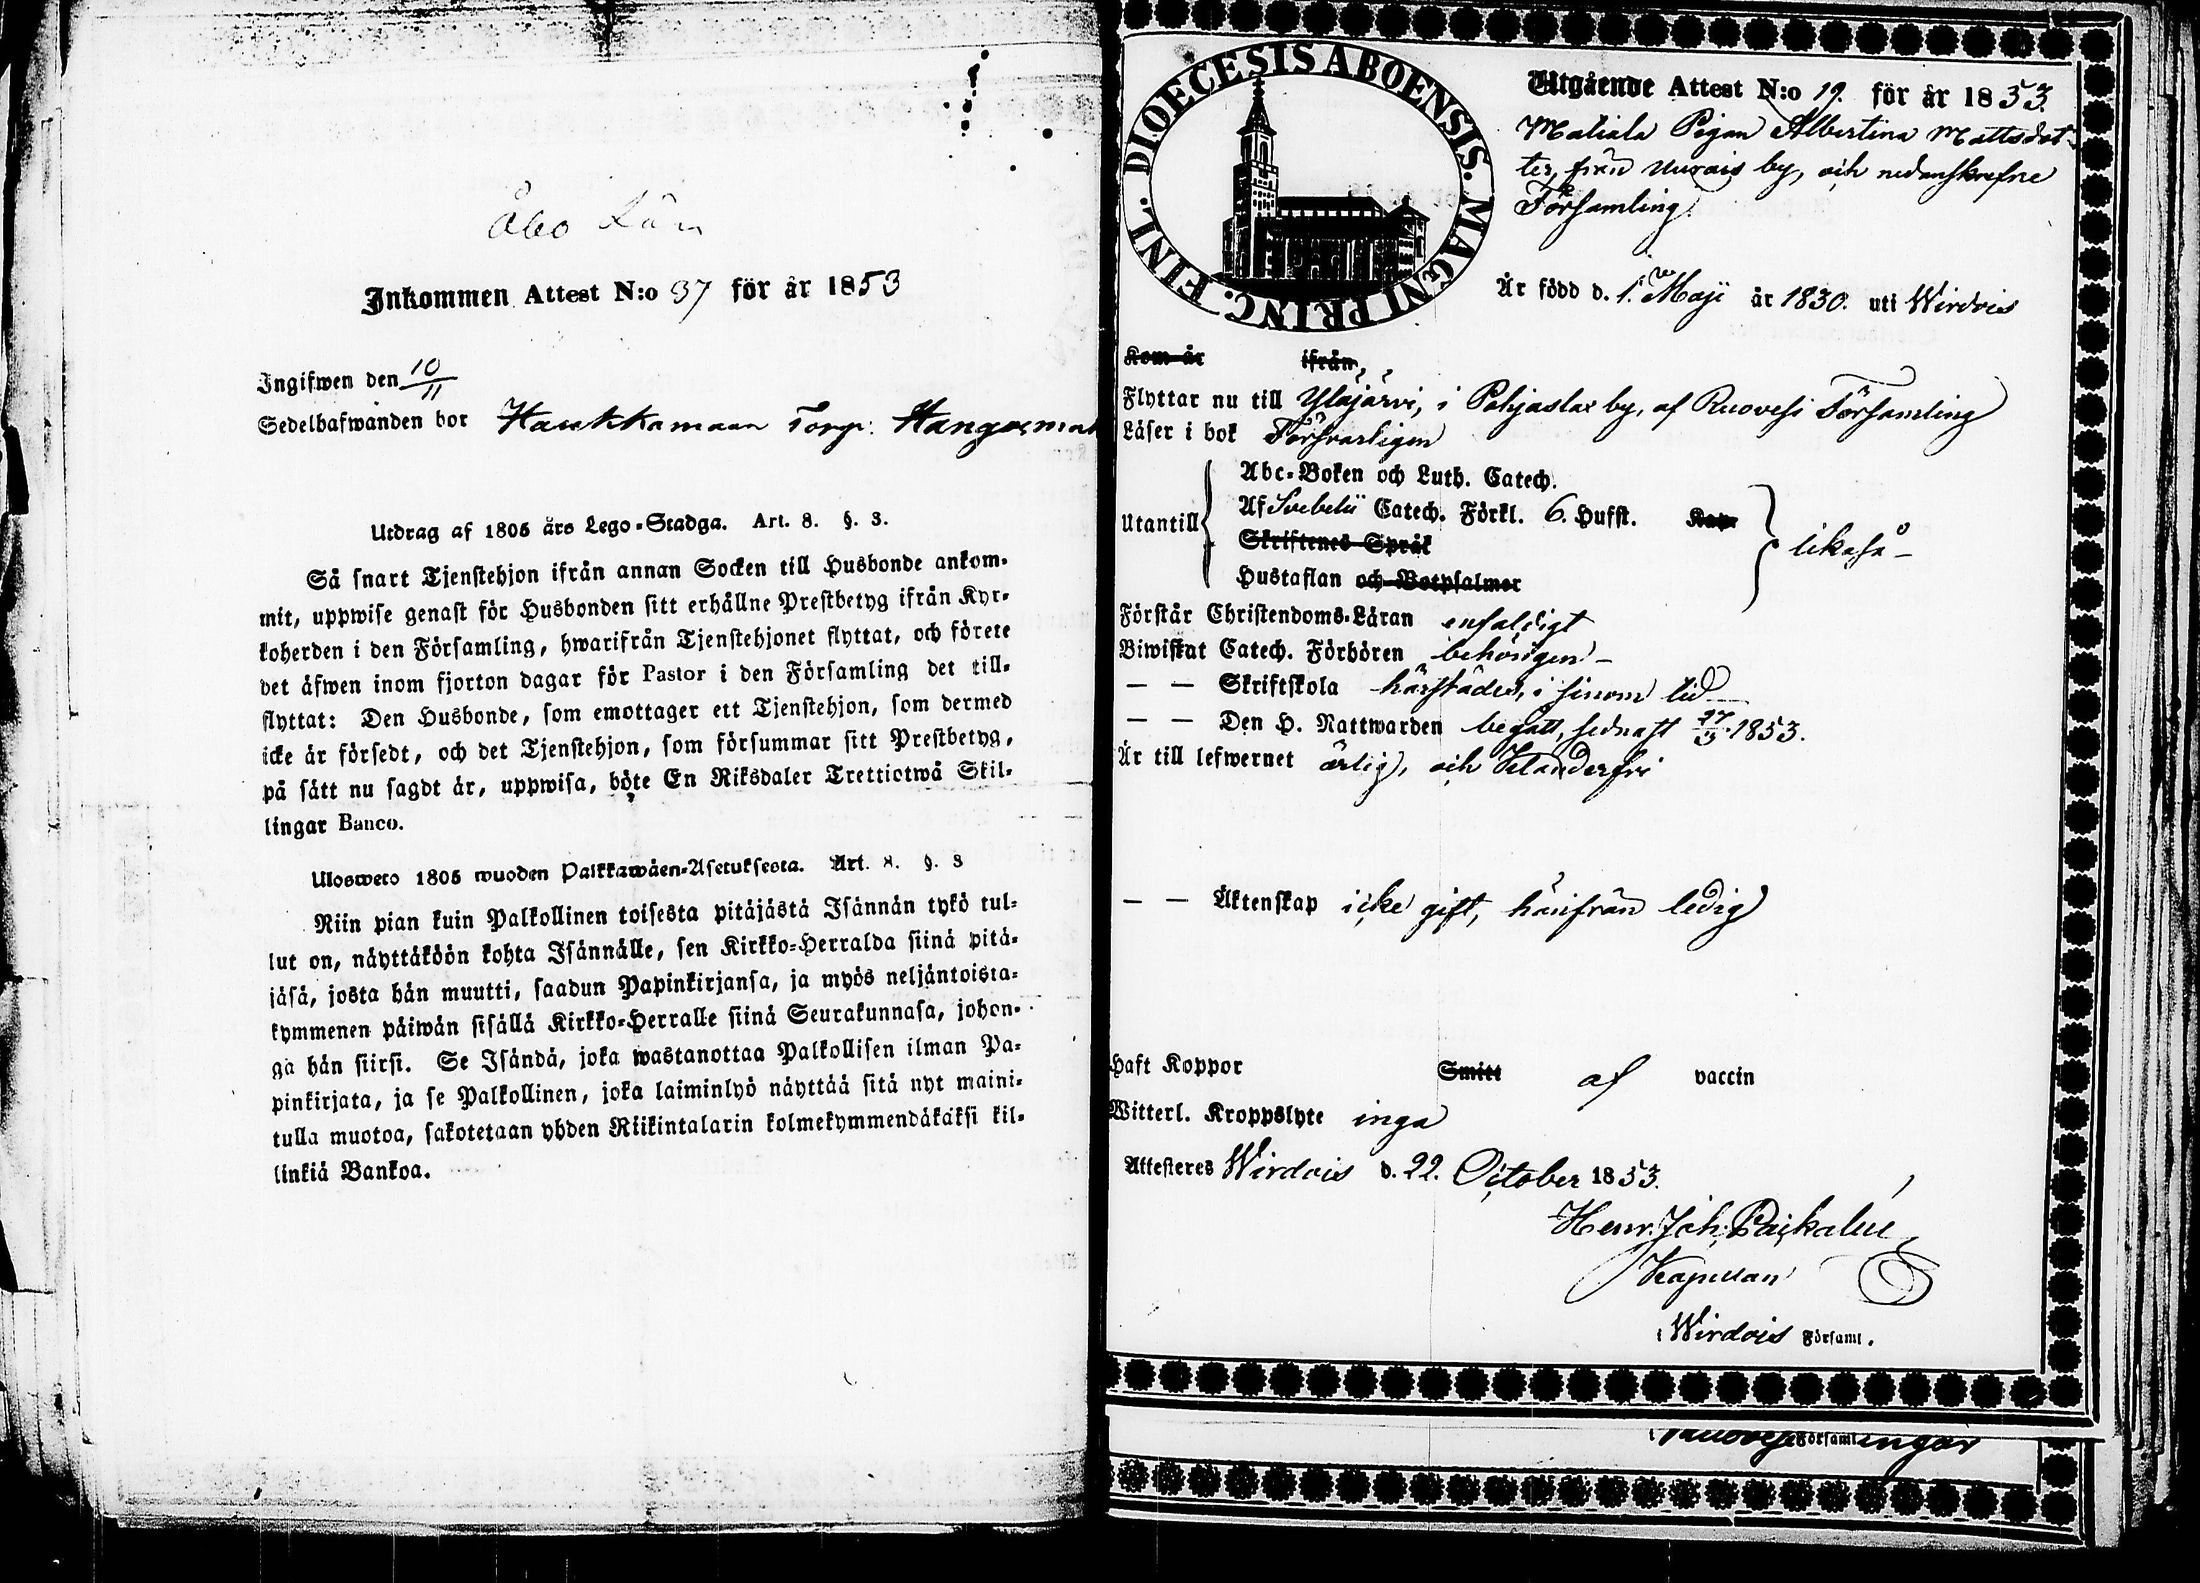 Åbo Län
Inkommen Attest N:o 37 för år 1853
Ingifwen den 10/11
Sedelhafwanden bor Haukkamaan Torp: Hangasmaa
Utdrag af 1805 års Lego-Stadga. Art. 8. §. 3.
Så snart Tjenstehjon ifrån annan Socken till Husbonde ankom-
mit, uppwise genast för Husbonden sitt erhållne Prestbetyg ifrån Kyr-
koherden i den Församling, hwarifrån Tjenstehjonet flyttat, och förete
det äfwen inom fjorton dagar för Pastor i den Församling det till-
flyttat: Den Husbonde, som emottager ett Tjenstehjon, som dermed
icke är försedt, och det Tjenstehjon, som försummar sitt Prestbetyg,
på sätt nu sagdt är, uppwisa, böte En Riksdaler Trettiotwå Skil-
lingar Banco.
Ulosweto 1805 wuoden Palkkawäen-Asetuksesta. Art. 8. §. 3
Niin pian kuin Palkollinen toisesta pitäjästä Isännän tykö tul-
lut on, näyttäköön kohta Isännälle, sen Kirkko-Herralda siinä pitä-
jäsä, josta hän muutti, saadun Papinkirjansa, ja myös neljäntoista-
kymmenen päiwän sisällä Kirkko-Herralle siinä Seurakunnasa, johon-
ga hän siirsi. Se Isändä, joka wastanottaa Palkollisen ilman Pa-
pinkirjata, ja se Palkollinen, joka laiminlyö näyttää sitä nyt maini-
tulla muotoa, sakotetaan yhden Riikintalarin kolmekymmendäkaksi kil-
linkiä Bankoa.
DIOECESIS ABOENSIS. MAGNI PRINC. FINL.
Utgående Attest N:o 19. för år 1853.
Matiala Pigan Albertina Mattsdot-
ter, från Murais by, och nedanskrefne
Församling.
Är född d. 1. Maji år 1830. uti Wirdois
Kom år ifrån
Flyttar nu till Yläjärvi, i Pohjaslax by, af Ruovesi Församling
Läser i bok Försvarligen
Utantill
Abc-Boken och Luth. Catech.
Af Svebelii Catech. Förkl. 6. Hufst. Kap.
Skriftenes Språk
Hustaflan och Botpsalmer
likaså
Förstår Christendoms-Läran enfaldigt
Biwistat Catech. Förhören behörigen
— — Skriftskola härstädes, i sinom tid
— — Den H. Nattwarden begått, sednast 1853.
Är till lefwernet ärlig, och Klanderfri
— — Äktenskap icke gift, härifrån ledig
Haft Koppor Smitt af vaccin
Witterl. Kroppslyte inga
Attesteres Wirdois d. 22. October 1853.
Henr. Joh.
Kapellan
i Wirdois Församl.
Ruovesi Församlingar